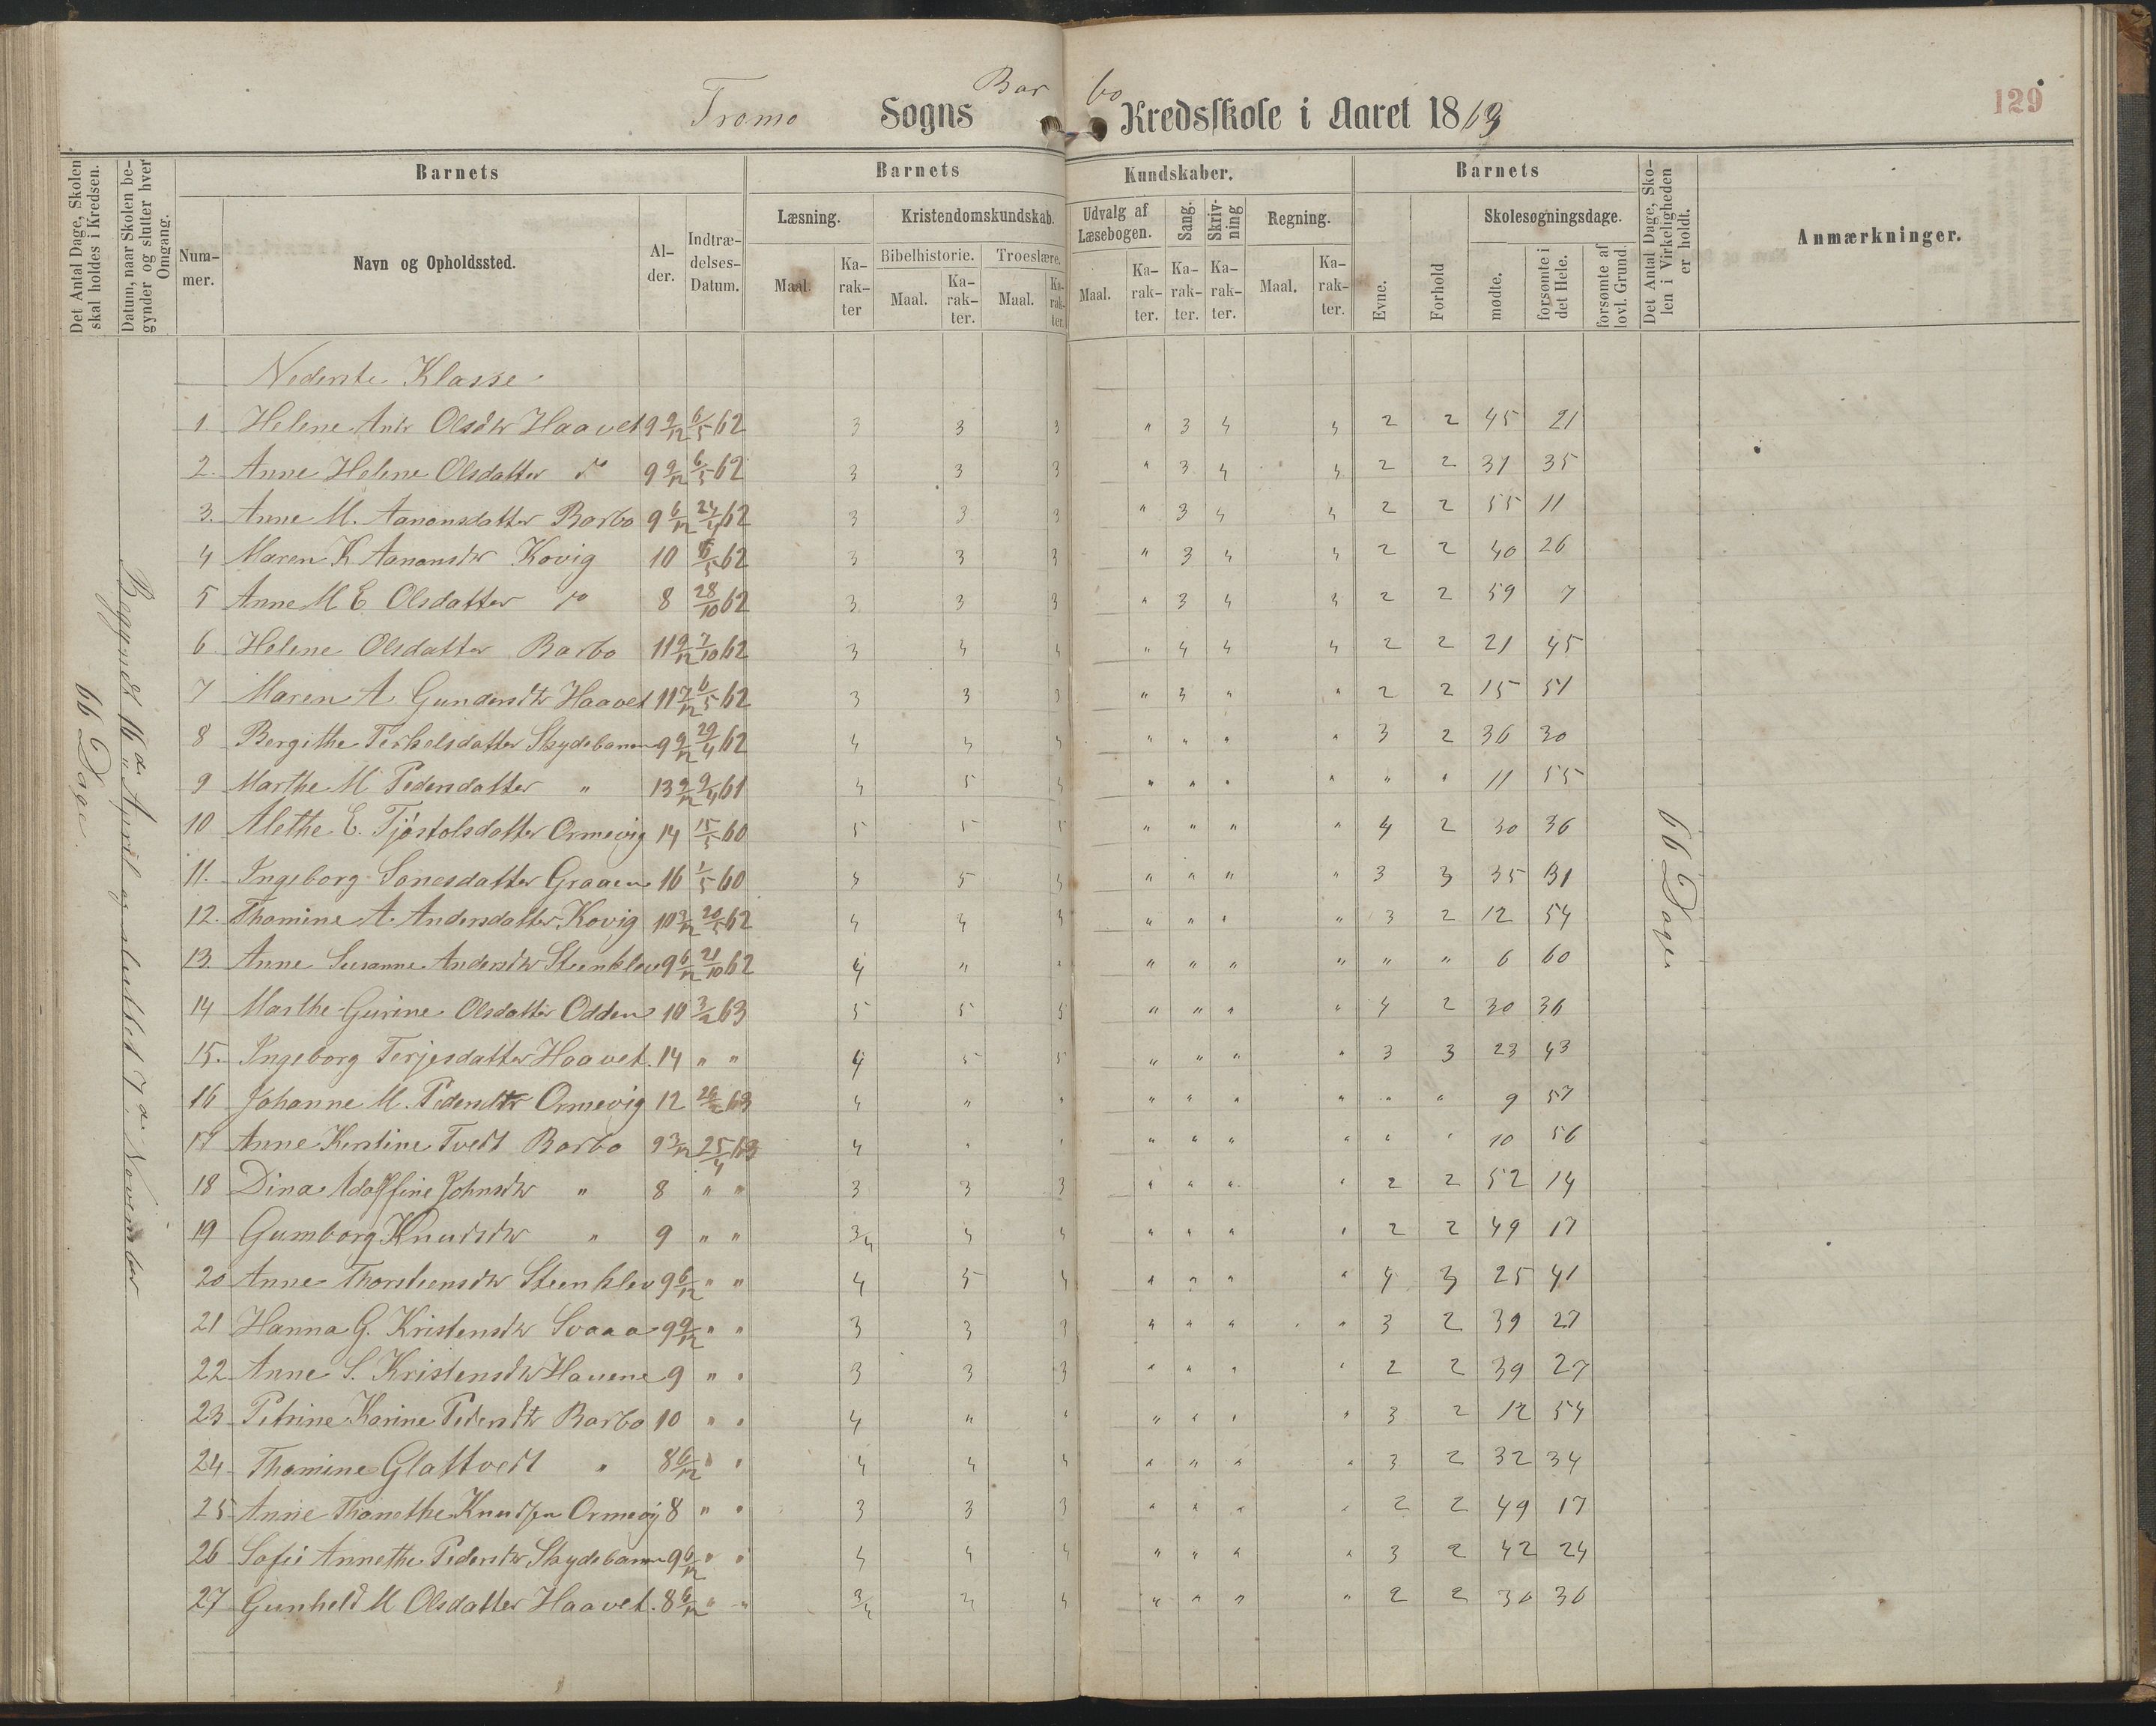 129
Tromø Sogns Barbo Kredsskole i Aaret 1863
Det Antal Dage, Skolen skal holdes i Kredsen.
Datum, naar Skolen begynder og slutter hver Omgang.
Barnets
Nummer.
Navn og Opholdssted.
Alder.
Indtrædelses-Datum.
Barnets Kundskaber.
Læsning.
Maal.
Karakter
Kristendomskundskab.
Bibelhistorie.
Maal.
Karakter.
Troeslære.
Maal.
Karakter.
Udvalg af Læsebogen.
Maal.
Karakter.
Sang.
Karakter.
Skrivning
Karakter.
Regning.
Maal.
Karakter.
Barnets
Evne.
Forhold
Skolesøgningsdage.
mødte.
forsømte i det Hele.
forsømte af lovl. Grund.
Det Antal Dage, Skolen i Virkeligheden er holdt.
Anmærkninger.
66 Dage
Begyndt 16de April og sluttet 7de November
66 Dage
Nederste Klasse
1 Helene Olsdtr Haavet 9 9/12 6/5 62 3 3 3 " 3 4 4 2 2 45 21
2. Anne Helene Olsdatter do 9 9/12 6/5 62 3 3 3 " 3 4 4 2 2 31 35
3. Anne M. Aanonsdatter Barbo 9 6/12 24/4 62 3 3 3 " 3 4 4 2 2 55 11
4 Maren K Aanonsdtr Kovig 10 6/5 62 3 3 3 " 3 4 4 2 2 40 26
5 Anne M E Olsdatter do 8 28/10 62 3 3 3 " 3 4 4 2 2 59 7
6 Helene Olsdatter Barbo 11 9/12 7/10 62 3 4 4 " 4 4 4 2 2 21 45
7 Maren A Gundersdtr Haavet 11 7/12 6/5 62 3 3 3 " 3 " " 2 2 15 51
8 Bergithe Terkelsdatter Skydebanen 9 9/12 29/4 62 4 4 4 " " " " 3 2 36 30
9 Marthe M Pedersdatter " 13 9/12 9/4 61 4 5 4 " " " " " " 11 55
10 Alethe E. Tjøstolsdatter Ormevig 14 15/5 60 5 5 5 " " " " 4 2 30 36
11. Ingeborg Sonesdatter Graaen 16 1/5 60 4 5 4 " " " " 3 3 35 31
12. Thomine A. Andersdatter Kovig 10 3/12 20/5 62 4 4 4 " " " " 3 2 12 54
13. Anne Susanne Andersdtr Steenklev 9 6/12 21/10 62 4 " " " " " " " " 6 60
14 Marthe Gurine Olsdatter Odden 10 3/2 63 5 5 5 " " " " 4 2 30 36
15. Ingeborg Terjesdatter Haavet. 14 " " 4 5 5 " " " " 3 3 23 43
16 Johanne M. Pedersdtr Ormevig 12 26/2 63 4 " " " " " " " " 9 57
17 Anne Kerstine Tvedt Barbo 9 3/12 25/4 63 4 " " " " " " " " 10 56
18 Dina Adolffine Johnsdtr " 8 " " 3 3 3 " " " " 2 2 52 14
19 Gumborg Knudsdtr " 9 " " 3/4 4 4 " " " " 2 2 49 17
20 Anne Thorsteensdtr Steenklev 9 6/12 " " 4 5 4 " " " " 4 3 25 41
21 Hanna G. Kristensdtr Svaaa 9 9/12 " " 3 3 3 " " " " 3 2 39 27
22 Anne S. Kristensdtr Hauene 9 " " 3 3 3 " " " " 2 2 39 27
23 Petrine Karine Pedersdtr Barbo 10 " " 4 " " " " " " 3 2 12 54
24 Thomine Glattvedt " 8 6/12 " " 4 4 4 " " " " 3 2 32 34
25 Anne Thonethe Knudsen Ormevig 8 " " 3 3 3 " " " " 2 2 49 17
26 Sofie Annethe Pedersdtr Skydebanen 9 6/12 " " 4 4 4 " " " " 3 2 42 24
27 Gunheld M Olsdatter Haavet. 8 6/12 " " 3/4 4 4 " " " " 2 2 36 30